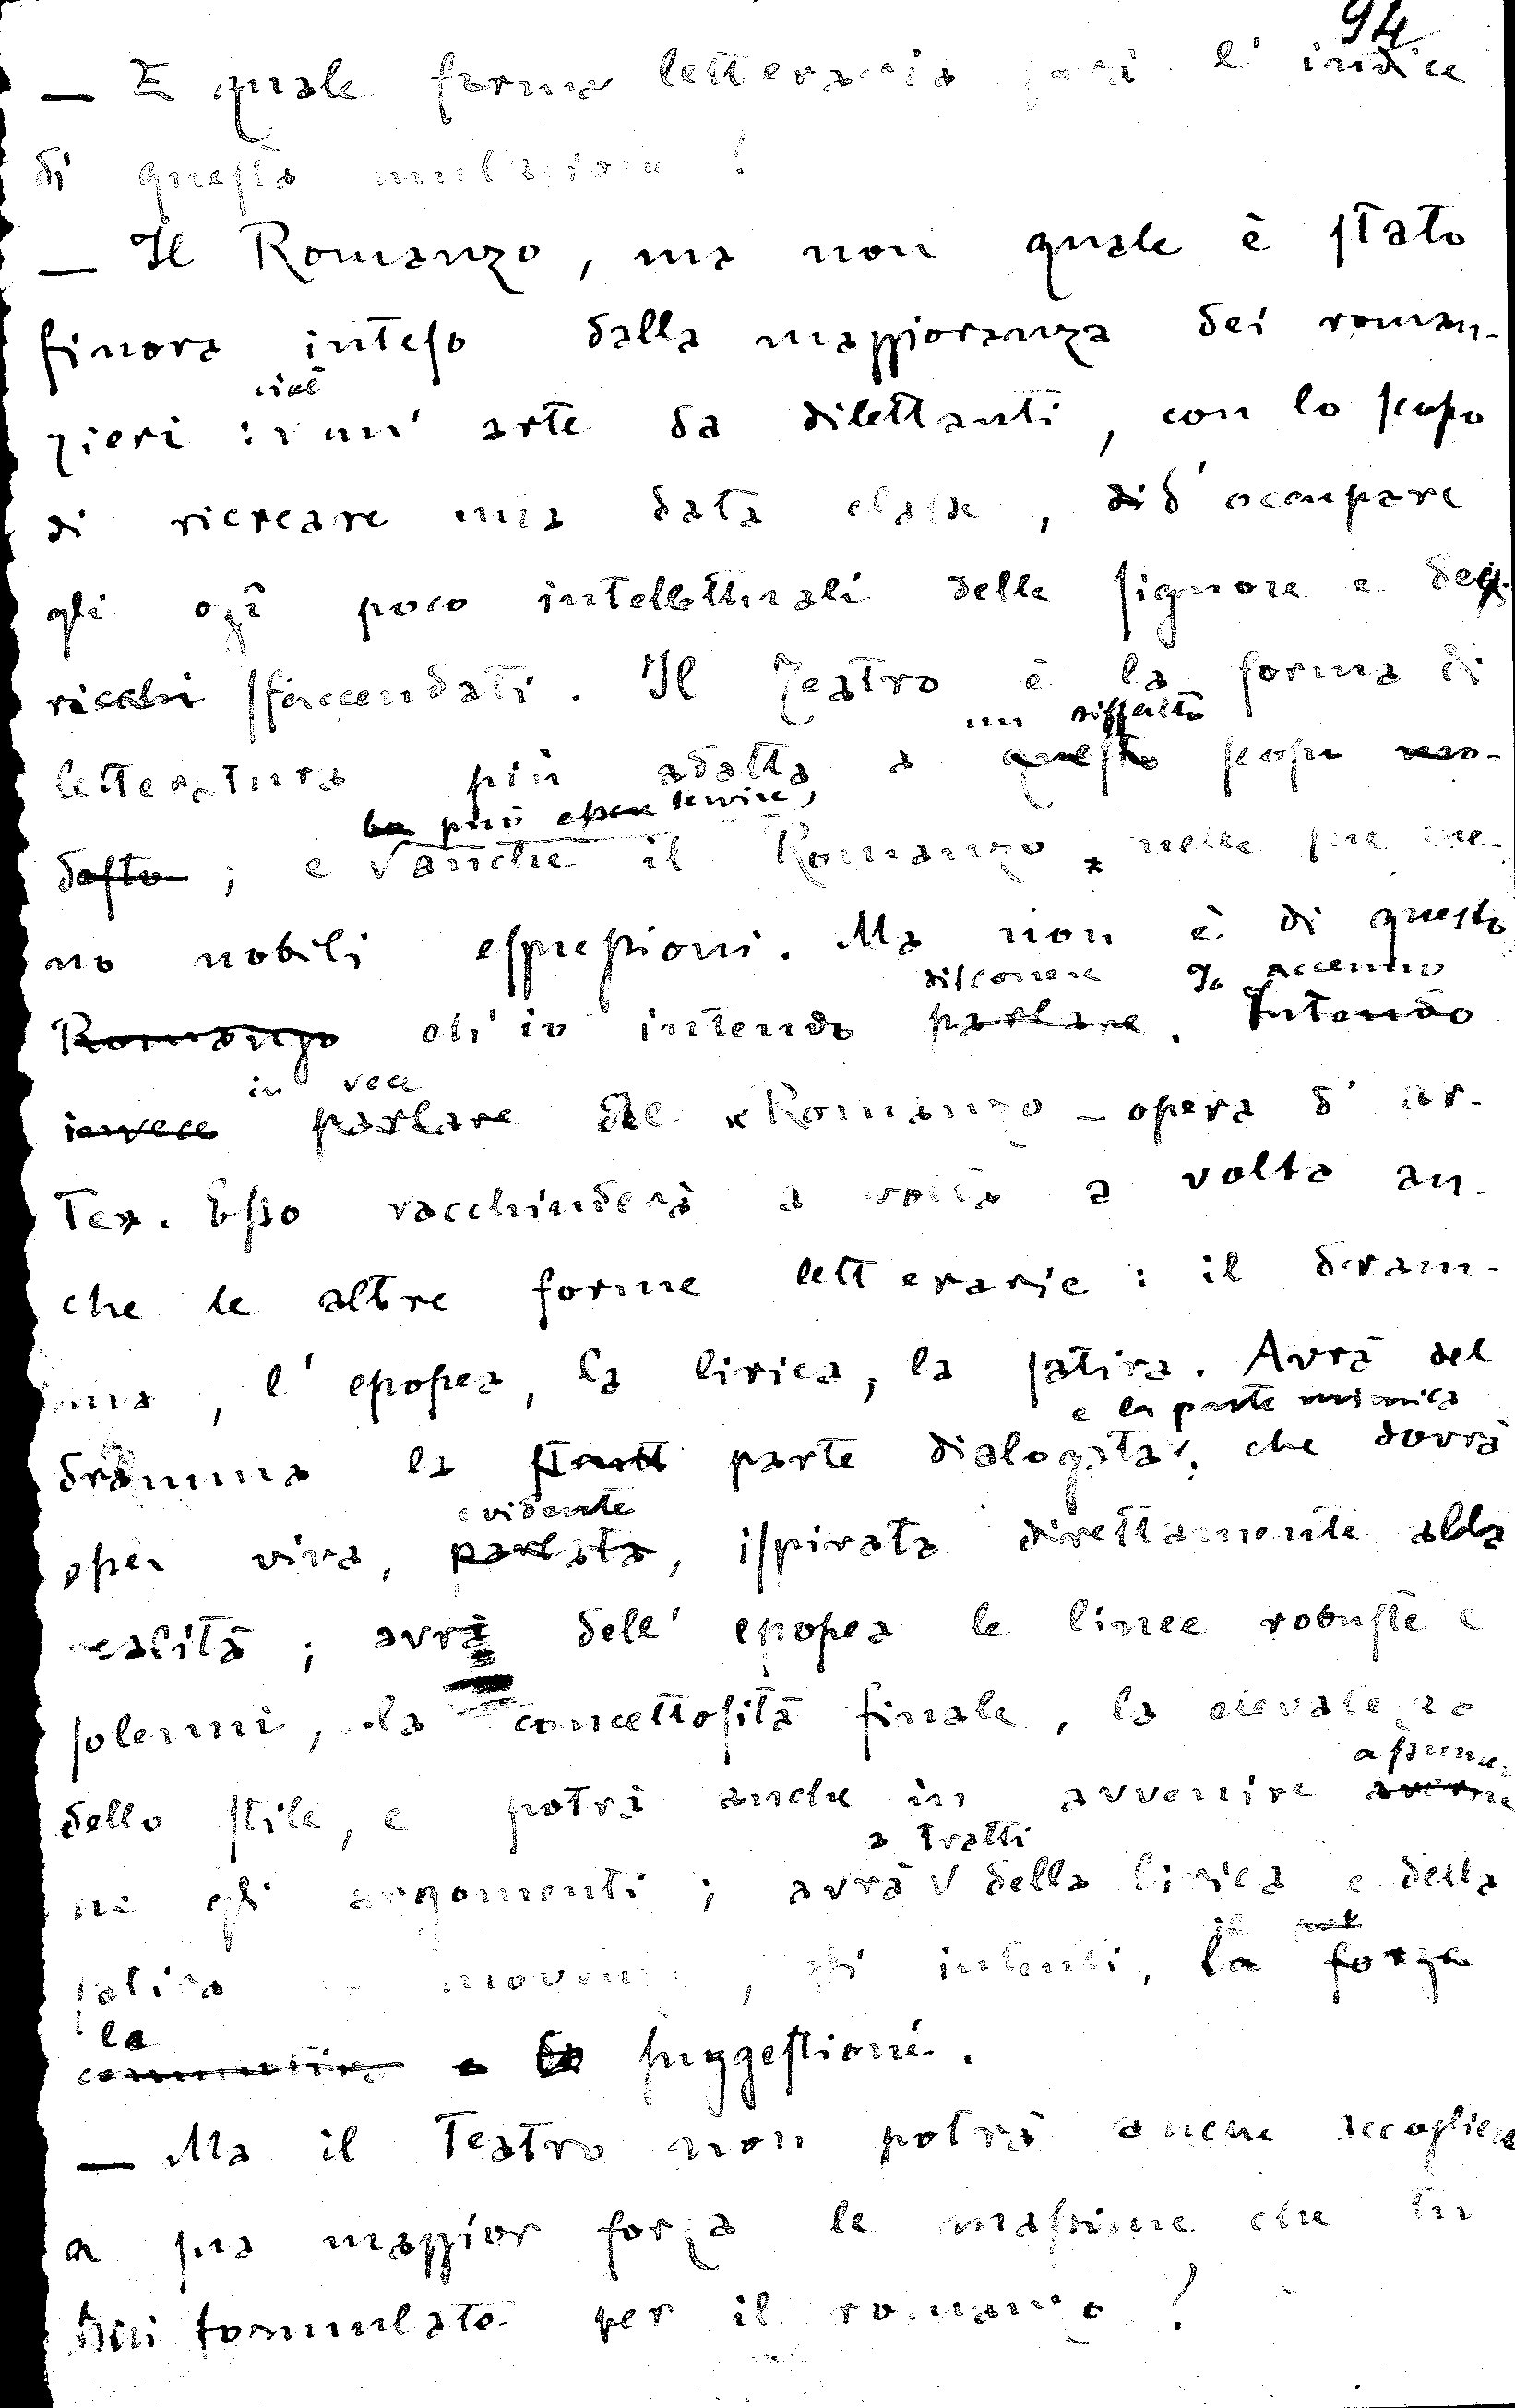 94
— E quale forma letteraria sarà l'indice
di questa mutazione?
— Il Romanzo, ma non quale è stato
finora inteso dalla maggioranza dei roman-
cioè
zieri : un' arte da dilettanti, con lo scopo
di ricreare una data classe, di d'occupare
gli ozî poco intellettuali delle signore e dei
ricchi sfaccendati. Il Teatro è la forma di
un siffatto
letteratura più adatta a questo scopo mo-
può essere servire,
desto ; e anche il Romanzo nelle sue me-
no nobili espressioni. Ma non è di questo
discorrere Io accenno
Romanzo ch'io intendo parlare. Intendo
in vece
invece parlare del «Romanzo - opera d'ar-
te». Esso racchiuderà a volta a volta an-
che le altre forme letterarie : il dram-
ma, l'epopea, la lirica, la satira. Avrà del
e la parte mimica
dramma la parte dialogata, che dovrà
evidente
esser viva, parlata, ispirata direttamente alla
realità ; avrà dell'epopea le linee robuste e
solenni, la concettosità finale, la elevatezza
assumer
dello stile, e potrà anche in avvenire averne
a tratti
ne gli argomenti ; avrà della lirica e della
il
satira, gli intenti, la forza
la
commotiva e la suggestione.
— Ma il Teatro non potrà anche accogliere
a sua maggior forza le massime che tu
hai formulato per il romanzo?